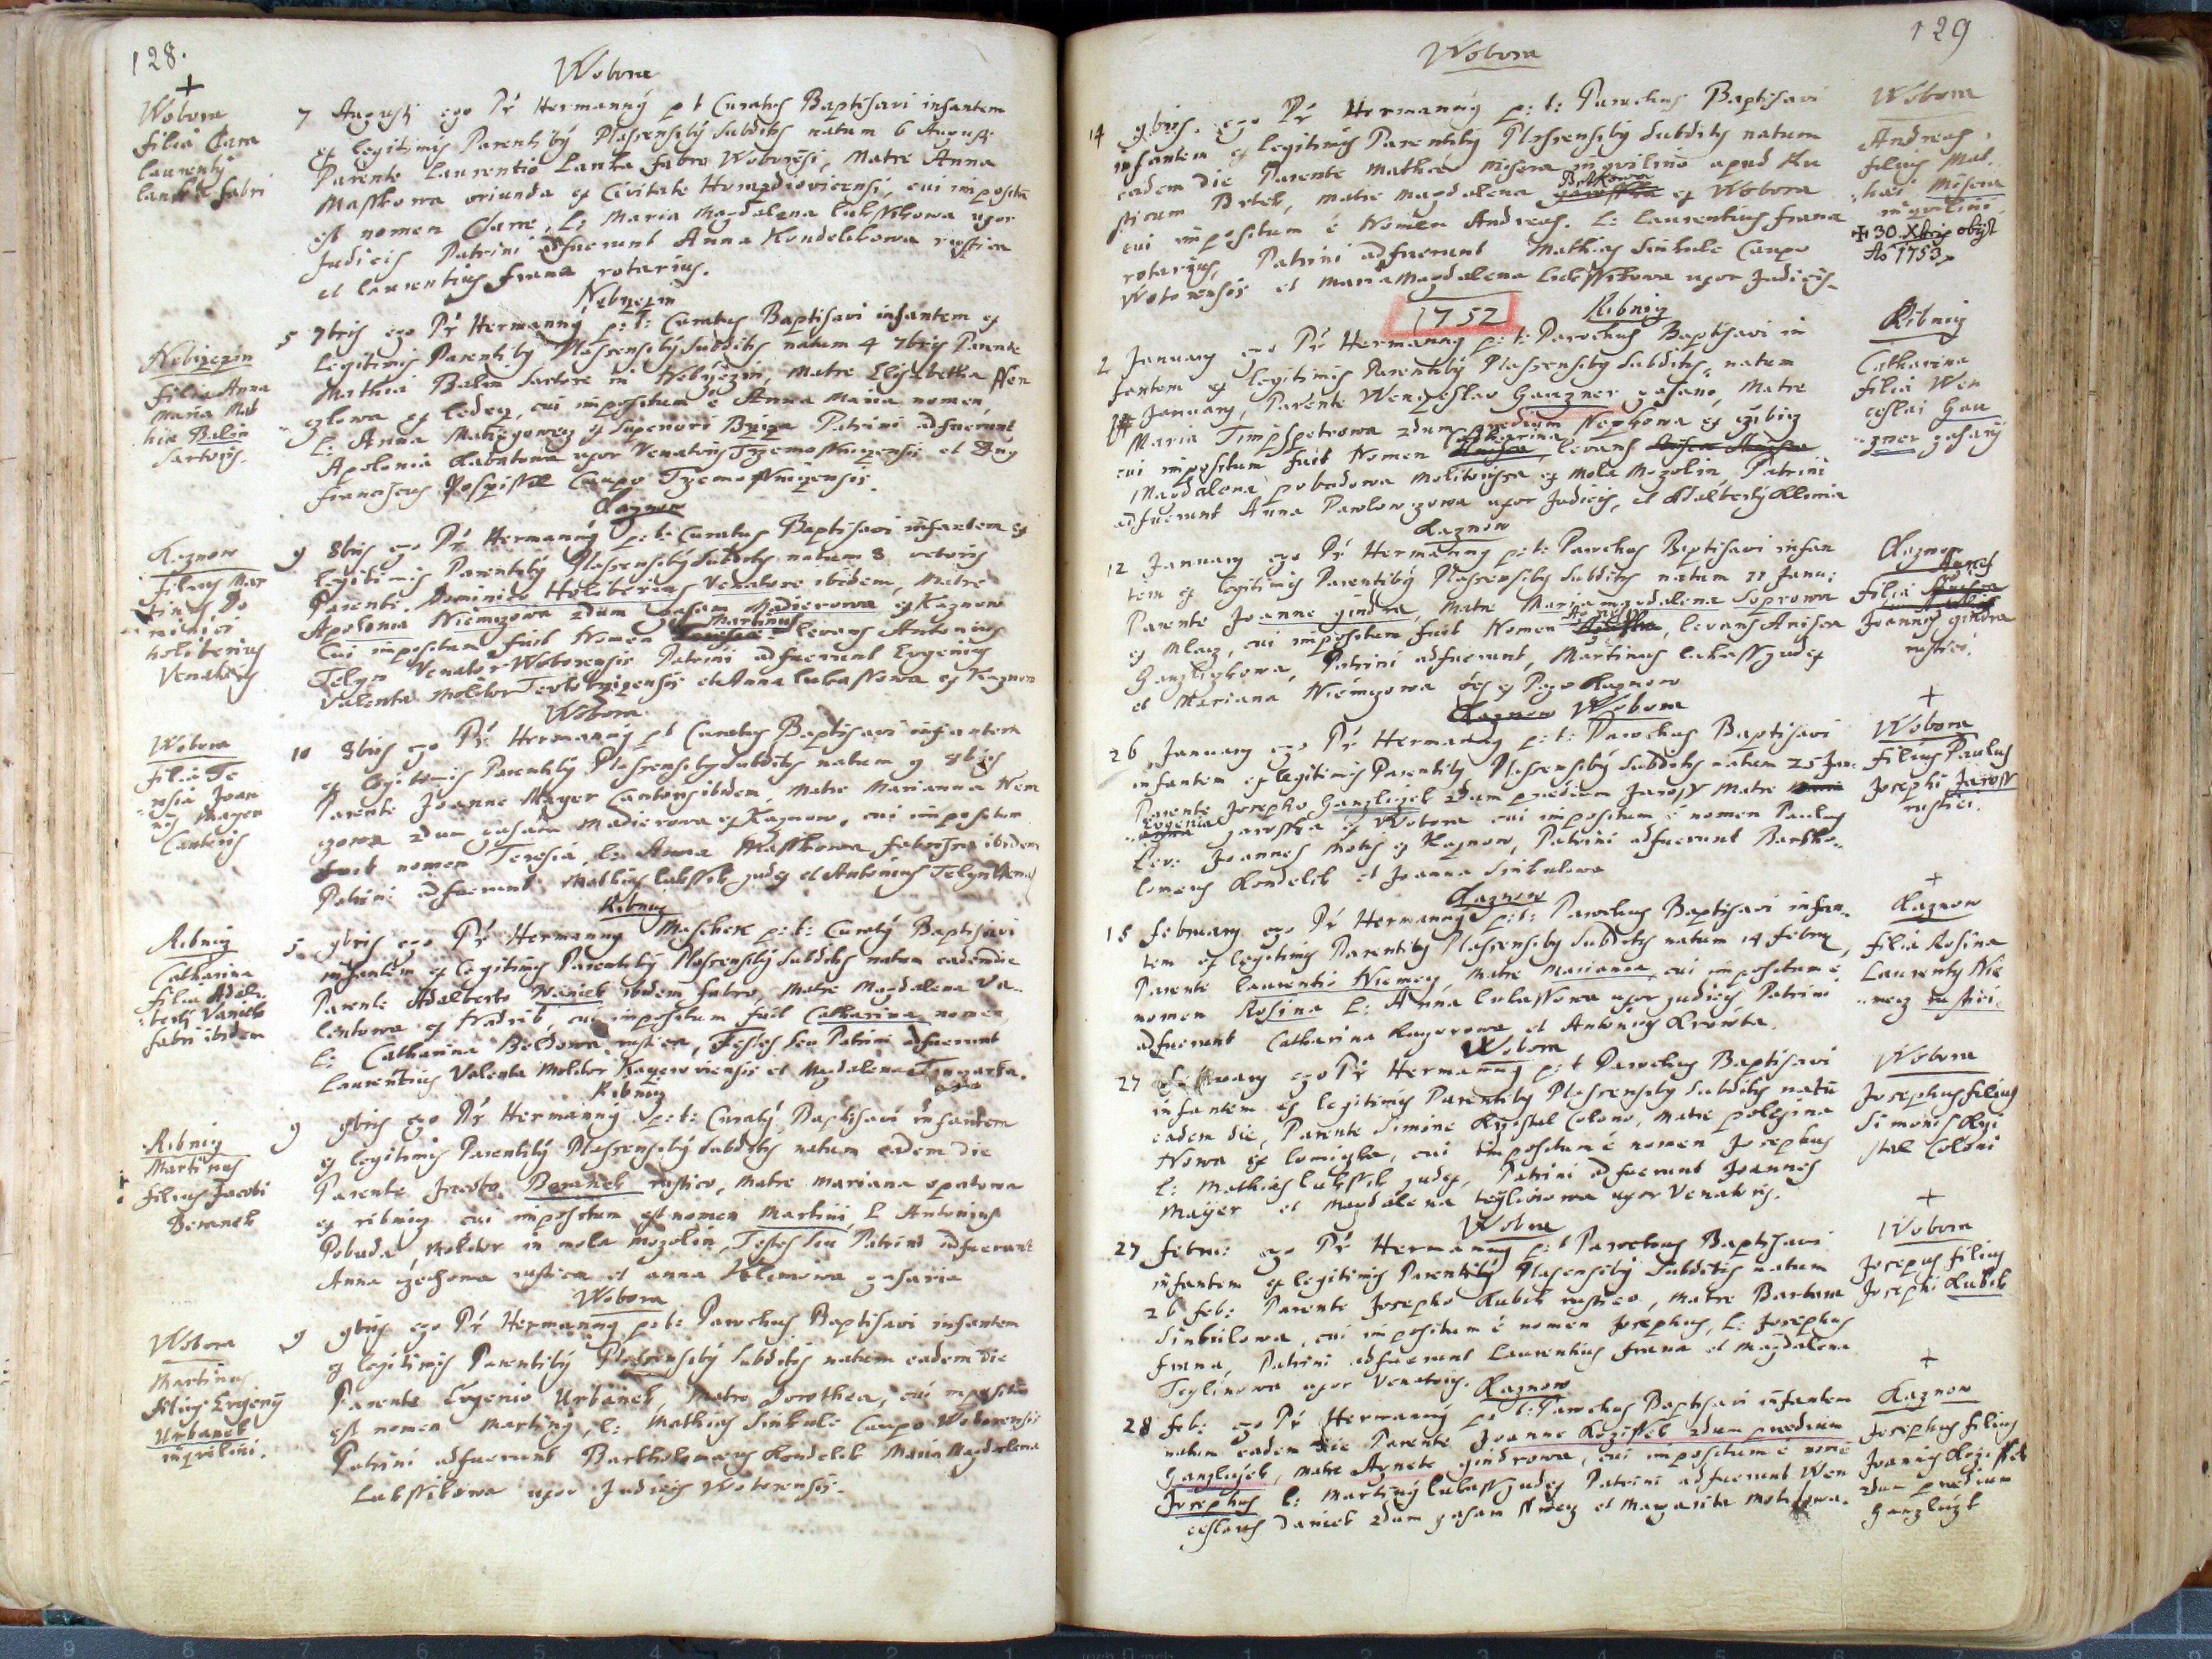 128.
Wobora
+
Wobora
filia Clara
Laurentÿ
Lanka fabri
7 Augusti ego Pr Hermannÿ p t Curatus Baptisavi infantem
ex legitimis Parentibÿ Plassensibÿ Subditis natum 6 Augusti
Parente Laurentio Lanka fabro Woborensi, Matre Anna
Masskowa oriunda ex Civitate, cui impositum
est nomen Clare, L: Maria Magdalena Lukssikowa uxor
Judicis Patrini adfuerunt Anna Kondelikowa rustica
et Laurentius frana rotarius.
Nebrzezin
Nebrzezin
filia Anna
Maria Mat
hiæ Balin
Sartoris.
5 7bris ego Pr Hermannÿ p: t: Curatus Baptisavi infantem ex
legitimis Parentibÿ Plassensibÿ Subditis natum 4 7bris Parente
Mathia Balin Sartore in Nebrzezin, Matre Elisabetha Wen
czlowa ex Ledez, cui impositum è Anna Maria nomen,
L: Anna ex Superiori Brziza Patrini adfuerunt
Apolonia Kabatowa uxor Venatoris Trzemossnizensis et
franciscus Pospissil Caupo Trzemossnizensis.
Kaznow
Kaznow
Filius Mar
tinus Do
minici
Holiberius
Venatoris
9 8bris ego Pr Hermannÿ p: t: Curatus Baptisavi infantem ex
legitimis Parentibÿ Plassensibÿ Subditis natum 8 octobris
Parente Dominico Holiberius Venatore ibidem, Matre
Apolonia Niemczowa 2dum casam Madierowa ex Kaznow
Cui impositum fuit Nomen Martinus levans Antonius
Telyn Venator Woborensis Patrini adfuerunt Evgenius
Valenta Molitor et Anna Lukassowa ex Kaznow
Wobora
Wobora
filia Te
resia Joan
nis Mayer
Cantoris
10 8bris ego Pr Hermannÿ p t Curatus Baptisavi infantem
ex legitimis Parentibÿ Plassensibÿ Subditis natum 9 8bris
Parente Joanne Mayer Cantoris ibidem, Matre Marianna Niem
czowa 2dum casam Madierowa ex Kaznow, cui impositum
fuit nomen Teresia, L: Anna Masskowa fabrissa ibidem
Patrini adfuerunt Mathias Lukssik judex et Antonius Telyn Vena
Ribniz
Ribniz
Catharina
filia Adal
berti Vaniek
fabri ibidem
5 9bris ego Pr Hermannÿ Maschek p: t: Curatÿ Baptisavi
infantem ex legitimis Parentibÿ Plassensibÿ Subditis natum eadem die
Parente Adalberto Waniek ibidem fabro, Matre Magdalena Va
lentowa ex Hradist, cui impositum fuit Catharina nomen
L: Catharina rustica, Testes seu Patrini adfuerunt
Laurentius Valenta Molitor et Magdalena
Ribniz
Ribniz
Martinus
filius Jacobi
Beranek
9 9bris ego Pr Hermannÿ p: t: Curatÿ Baptisavi infantem
ex legitimis Parentibÿ Plassensibÿ Subditis natum eadem die
Parente Jacobo Beranek rustico, Matre Mariana opatowa
ex ribniz cui impositum est nomen Martini, L Antonius
Pobuda Molitor in mola Mozolin, Testes seu Patrini adfuerunt
Anna rustica et anna Klimowa casaria
Wobora
Wobora
Martinus
filius Evgenÿ
Urbanek
inquilini.
9 9bris ego Pr Hermannÿ p: t: Parochus Baptisavi infantem
ex legitimis Parentibÿ Plassensibÿ Subditis natum eadem die
Parente Evgenio Urbanek, Matre Dorothea, cui impositum
est nomen Martinÿ, L: Mathias Sinkule Caupo Woborensis
Patrini adfuerunt Bartholomæus Kondelik Maria Magdalena
Lukssikowa uxor Judicis Woborensis.
129
Wobora
Wobora
Andreas
filius Mat
hæi Misera
inquilini
+ 30. Xbris obÿt
Ao 1753
14 9bris. ego Pr Hermannÿ p: t: Parochus Baptisavi
infantem ex legitimis Parentibÿ Plassensibÿ Subditis natum
eadem die Parente Mathæo Misera inquilino apud Ru
sticum Brtek, Matre Magdalena Brtkowa ex Wobora
cui impositum è Nomen Andreas. L: Laurentius frana
rotarius, Patrini adfuerunt Mathias Sinkule Caupo
Woborensis et Maria Magdalena Lukssikowa uxor Judicis
1752
Ribniz
Ribniz
Catharina
filia Wen
ceslai Gau
zner casarÿ
2 January ego Pr Hermannÿ p: t: Parochus Baptisavi in
fantem ex legitimis Parentibÿ Plassensibÿ Subditis, natum
January, Parente Wenzeslao Gauzner casario, Matre
Maria 2dum prædium Nepkowa ex
cui impositum fuit Nomen Catharina levans
Magdalena pobudowa Molitorissa ex Mola Mozolin Patrini
adfuerunt Anna Pawlowczowa uxor Judicis, et Adalbertÿ Klima
Kaznow
Kaznow
Agnes
filia
Joannis gindra
rustici.
12 January ego Pr Hermannÿ p: t: Parochus Baptisavi infan
tem ex legitimis Parentibÿ Plassensibÿ Subditis natum 11 Janu:
Parente Joanne gindra, Matre Maria magdalena Soprowa
ex Mlaz, cui impositum fuit Nomen Agnes, levans
Ganzliczkowa, Patrini adfuerunt, Martinus Lukass judex
et Mariana Niemczowa ex Pago Kaznow
Kaznow Wobora
+
Wobora
filius Paulus
Josephi Jaross
rustici.
26 January ego Pr Hermannÿ p: t: Parochus Baptisavi
infantem ex legitimis Parentibÿ Plassensibÿ Subditis natum 25 Jan:
Parente Josepho Ganzliczek 2dum prædium Jaross Matre
Evgenia jarosska ex Wobora cui impositum è nomen Paulus
Lev: Joannes Motis ex Kaznow, Patrini adfuerunt Bartho
lomeus Kondelik et Joanna Sinkulowa
Kaznow
+
Kaznow
filia Rosina
Laurenty Nie
mecz rustici.
15 february ego Pr Hermannÿ p: t: Parochus Baptisavi infan
tem ex legitimis Parentibÿ Plassensibÿ Subditis natum 14 febru,
Parente Laurentio Niemecz, Matre Marianna, cui impositum è
nomen Rosina L: Anna Lukassowa uxor judicis Patrini
adfuerunt Catharina et Antonius Krowta.
Wobora
Wobora
Josephus filius
Simonis Krzi
stal Coloni
27 february ego Pr Hermannÿ p: t Parochus Baptisavi
infantem ex legitimis Parentibÿ Plassensibÿ Subditis natum
eadem die, Parente Simone Krzistal Colono, Matre
ex Lomiczka, cui impositum è nomen Josephus
L: Mathias Lukssik judex, Patrini adfuerunt Joannes
Mayer et Magdalena teylinowa uxor Venatoris.
Wobora
+
Wobora
Josephus filius
Josephi Kubik
27 febru: ego Pr Hermannÿ p: t Parochus Baptisavi
infantem ex legitimis Parentibÿ Plassensibÿ Subditis natum
26 feb: Parente Josepho Kubik rustico, Matre Barbara
Sinkulowa, cui impositum è nomen Josephus, L: Josephus
frana, Patrini adfuerunt Laurentius frana et Magdalena
Teylinowa uxor Venatoris.
Kaznow
+
Kaznow
Josephus filius
Joannis Kozissek
2dum prædium
Ganzliczk
28 feb: ego Pr Hermannÿ p: t: Parochus Baptisavi infantem
natum eadem die Parente Joanne Kozissek 2dum prædium
Ganzliczek, Matre Agnete gindrowa, cui impositum è nomen
Josephus L: Martinÿ Lukass judex Patrini adfuerunt Wen
ceslaus Daniek 2dum casam et Margarita Motisowa.